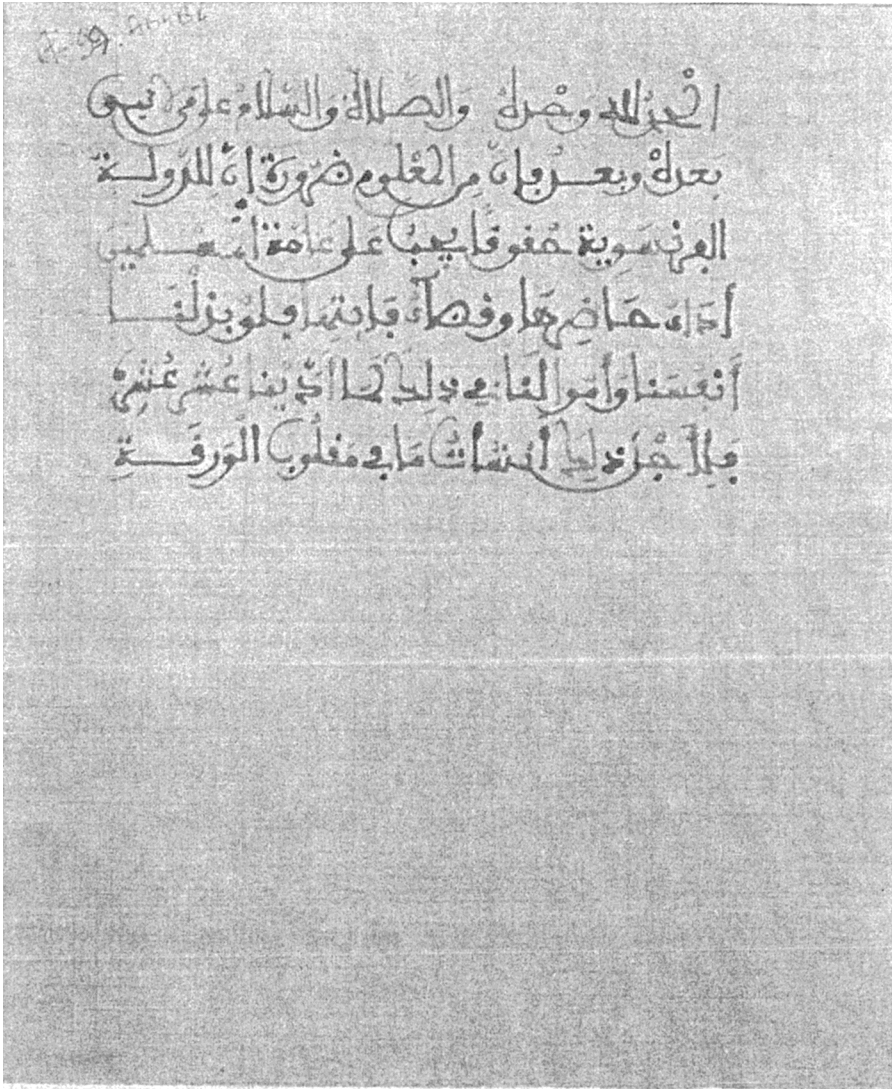 الحمد لله وحده والصلاة والسلام على من لا نبي
بعده وبعد فإن من المعلوم ضرورة إنّ للدولة
الفرنسوية حقوقا يجب على عامة المسلمين
أداء حاضرها وقضاء فايتها فلو بذلنا
أنفسنا وأموالنا في ذلك لما أدّينا عشر عشره
فلأجل ذلك أنشأت ما في مقلوب الورقة